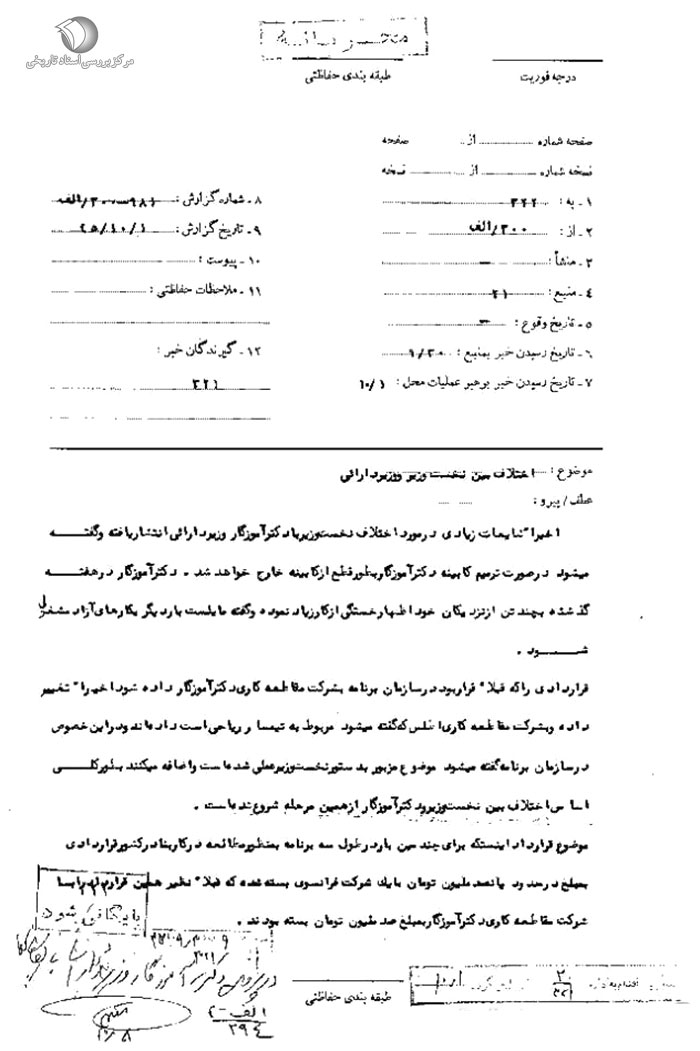 مرکز بررسی اسناد تاریخی
محرمانه
درجه فوریت
طبقه بندی حفاظتی
صفحه شماره از صفحه
نسخه شماره از نسخه
۱ـ به : ۳۲۲
۲ـ از : ۳۰۰/الف
۳ـ منشأ :
۴ـ منبع : ۲۱
۵ـ تاریخ وقوع :
۶ـ تاریخ رسیدن خبر بمنبع : ۹/۳۰
۷ـ تاریخ رسیدن خبر برهبر عملیات محل : ۱۰/۱
۸ـ شماره گزارش :
۹ـ تاریخ گزارش : ۴۵/۱۰/۱
۱۰ـ پیوست :
۱۱ـ ملاحظات حفاظتی :
۱۲ـ گیرندگان خبر :
۳۲۱
موضوع : اختلاف بین نخست وزیر ووزیردارائی
عطف/پیرو :
اخیرا" شایعات زیادی درمورد اختلاف نخست وزیربادکترآموزگار وزیردارائی انتشاریافته وگفته
میشود درصورت ترمیم کابینه دکترآموزگاربطورقطع ازکابینه خارج خواهد شد . دکترآموزگار درهفته
گذشته بچندتن ازنزدیکان خوداظهارخستگی ازکارزیادنموده وگفته مایلست باردیگر بکارهای آزاد مشغول
شود .
قراردادی راکه قبلا" قراربود درسازمان برنامه بشرکت مقاطعه کاری دکترآموزگار داده شوداخیرا" تغییر
داده وبشرکت مقاطعه کاری اطلس که گفته میشود مربوط به تیمسار ریاحی است داده اند ودراین خصوص
درسازمان برنامه گفته میشود موضوع مزبور بدستورنخست وزیرعملی شده است واضافه میکنند بطورکلی
اساس اختلاف بین نخست وزیرودکترآموزگار ازهمین مرحله شروع شده است .
موضوع قرارداد اینستکه برای چندمین باردرطول سه برنامه بمنظورمطالعه درکاربنادرکشورقراردادی
بمبلغ درحدود پانصدملیون تومان بایک شرکت فرانسوی بسته شده که قبلا" نظیر همین قراردادرابا
شرکت مقاطعه کاری دکترآموزگاربمبلغ صدملیون تومان بسته بودند .
۳۲۲
بایگانی شود
الف-۴
۳۹۴
طبقه بندی حفاظتی